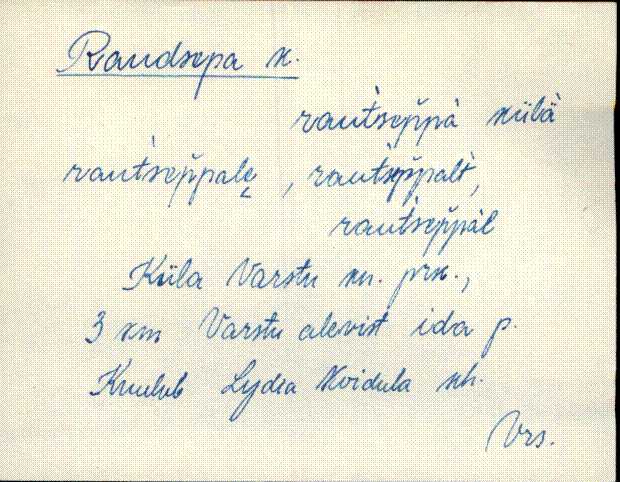 Raudsepa k.
raut̀sep̆pà külä
raut̀sep̆pale̮, raut̀sep̆palt̀,
raut̀sep̆pàl
Küla Varstu kn. prk.,
3 km Varstu alevist ida p.
Kuulub Lydia Koidula kh.
Vrs.